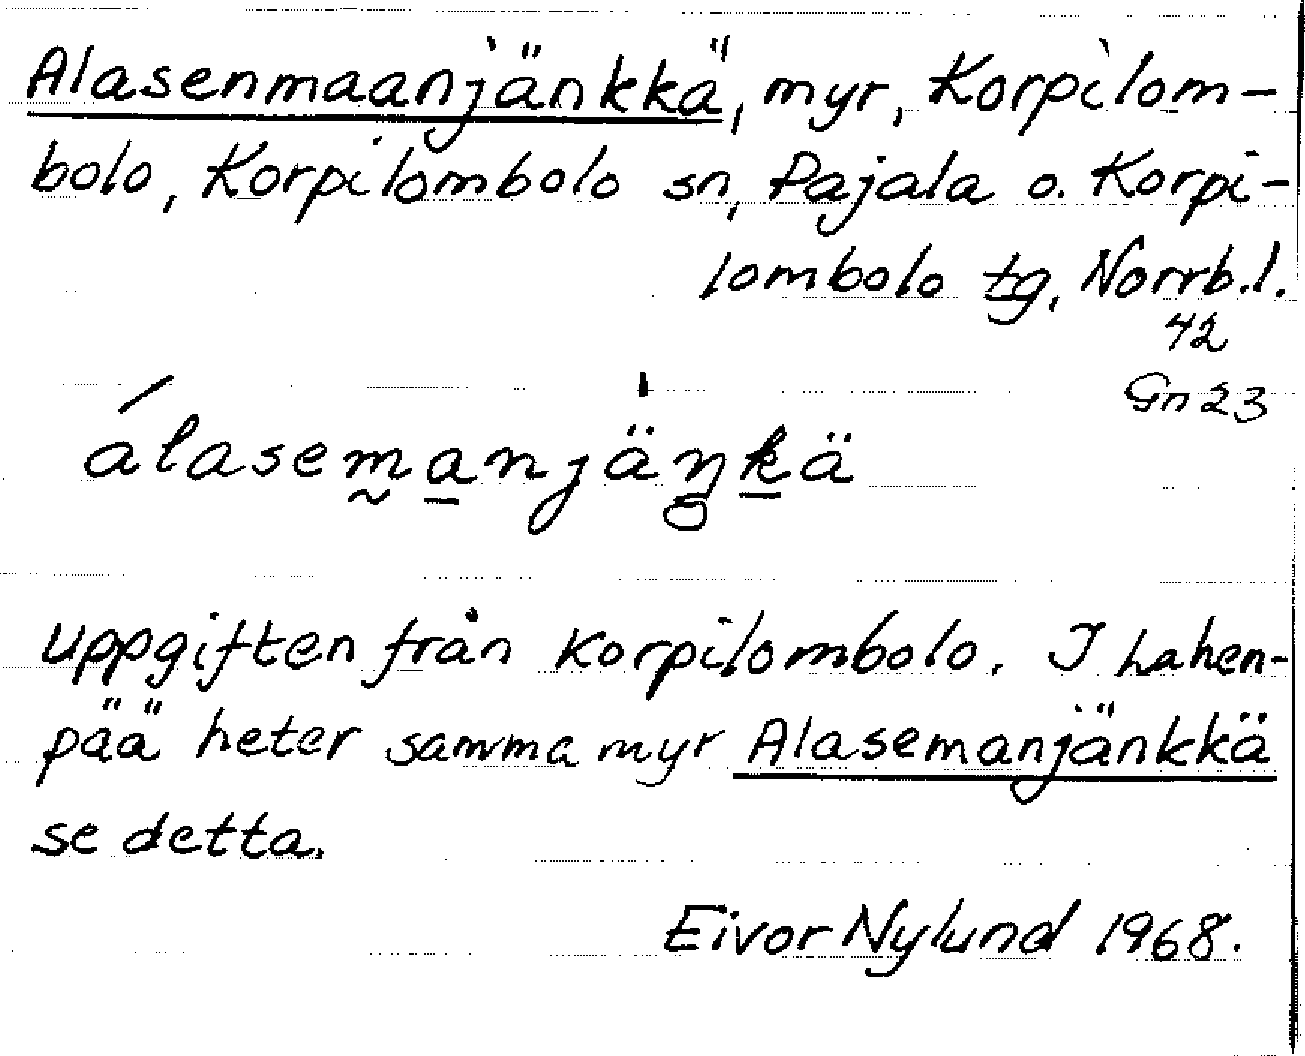 Alasenmaanjänkkä, myr, Korpilom-
bolo, Korpilombolo sn, Pajala o. Korpi-
lombolo tg, Norrb.l.
42
Gn 23
álasem̰a̱njäŋḵä
Uppgiften från Korpilombolo. I Lahen-
pää heter samma myr Alasemanjänkkä
se detta.
Eivor Nylund 1968.